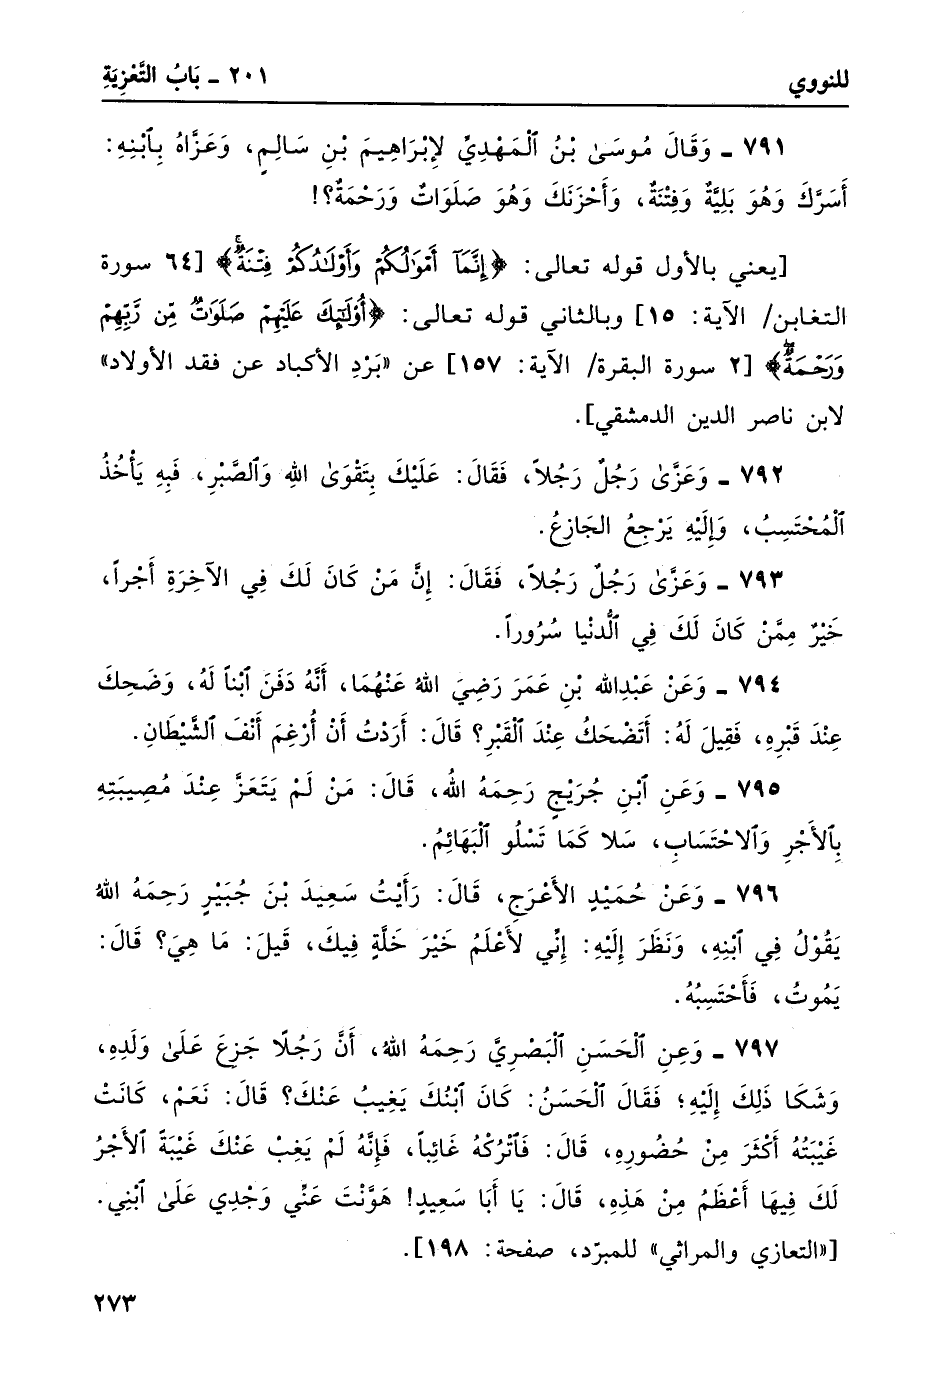 للنووي ٢٠١ ـ بَابُ التَّعْزِيَةِ
٧٩١ ـ وَقَالَ مُوسَىٰ بْنُ ٱلْمَهْدِيِّ لِإِبْرَاهِيمَ بْنِ سَالِمٍ، وَعَزَّاهُ بِٱبْنِهِ:
أَسَرَّكَ وَهُوَ بَلِيَّةٌ وَفِتْنَةٌ، وَأَحْزَنَكَ وَهُوَ صَلَوَاتٌ وَرَحْمَةٌ؟!
[يعني بالأول قوله تعالى: ﴿إِنَّمَآ أَمْوَٰلُكُمْ وَأَوْلَٰدُكُمْ فِتْنَةٌ ۚ﴾ [٦٤ سورة
التغابن/ الآية: ١٥] وبالثاني قوله تعالى: ﴿أُوْلَٰٓئِكَ عَلَيْهِمْ صَلَوَٰتٌ مِّن رَّبِّهِمْ
وَرَحْمَةٌ ۖ﴾ [٢ سورة البقرة/ الآية: ١٥٧] عن «بَرْدِ الأكباد عن فقد الأولاد»
لابن ناصر الدين الدمشقي].
٧٩٢ ـ وَعَزَّىٰ رَجُلٌ رَجُلاً، فَقَالَ: عَلَيْكَ بِتَقْوَىٰ اللهِ وَٱلصَّبْرِ، فَبِهِ يَأْخُذُ
ٱلْمُحْتَسِبُ، وَإِلَيْهِ يَرْجِعُ الجَازِعُ.
٧٩٣ ـ وَعَزَّىٰ رَجُلٌ رَجُلاً، فَقَالَ: إِنَّ مَنْ كَانَ لَكَ فِي الآخِرَةِ أَجْراً،
خَيْرٌ مِمَّنْ كَانَ لَكَ فِي ٱلدُّنْيا سُرُوراً.
٧٩٤ ـ وَعَنْ عَبْدِالله بْنِ عَمَرَ رَضِيَ اللهُ عَنْهُمَا، أَنَّهُ دَفَنَ ٱبْناً لَهُ، وَضَحِكَ
عِنْدَ قَبْرِهِ، فَقِيلَ لَهُ: أَتَضْحَكُ عِنْدَ ٱلْقَبْرِ؟ قَالَ: أَرَدْتُ أَنْ أُرْغِمَ أَنْفَ ٱلشَّيْطَانِ.
٧٩٥ ـ وَعَنِ ٱبْنِ جُرَيْجٍ رَحِمَهُ اللهُ، قَالَ: مَنْ لَمْ يَتَعَزَّ عِنْدَ مُصِيبَتِهِ
بِٱلأَجْرِ وَٱلاحْتَسَابِ، سَلا كَمَا تَسْلُو ٱلْبَهَائِمُ.
٧٩٦ ـ وَعَنْ حُمَيْدٍ الأَعْرَجِ، قَالَ: رَأَيْتُ سَعِيدَ بْنَ جُبَيْرٍ رَحِمَهُ اللهُ
يَقُوْلُ فِي ٱبْنِهِ، وَنَظَرَ إِلَيْهِ: إِنِّي لأَعْلَمُ خَيْرَ خَلَّةٍ فِيكَ، قَيلَ: مَا هِيَ؟ قَالَ:
يَمُوتُ، فَأَحْتَسِبُهُ.
٧٩٧ ـ وَعِنِ ٱلْحَسَنِ ٱلْبَصْرِيِّ رَحِمَهُ اللهُ، أَنَّ رَجُلًا جَزِعَ عَلَىٰ وَلَدِهِ،
وَشَكَا ذَلِكَ إِلَيْهِ؛ فَقَالَ ٱلْحَسَنُ: كَانَ ٱبْنُكَ يَغِيبُ عَنْكَ؟ قَالَ: نَعَمْ، كَانَتْ
غَيْبَتُهُ أَكْثَرَ مِنْ حُضُورِهِ، قَالَ: فَٱتْرُكْهُ غَائِباً، فَإِنَّهُ لَمْ يَغِبْ عَنْكَ غَيْبَةً ٱلأَجْرُ
لَكَ فِيهَا أَعْظَمُ مِنْ هَذِهِ، قَالَ: يَا أَبَا سَعِيدٍ! هَوَّنْتَ عَنِّي وَجْدِي عَلَىٰ ٱبْنِي.
[«التعازي والمراثي» للمبرّد، صفحة: ١٩٨].
٢٧٣